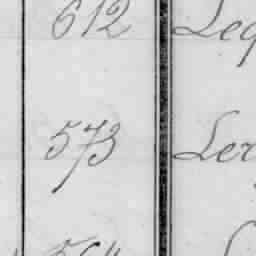 612 Leq
573 Ler